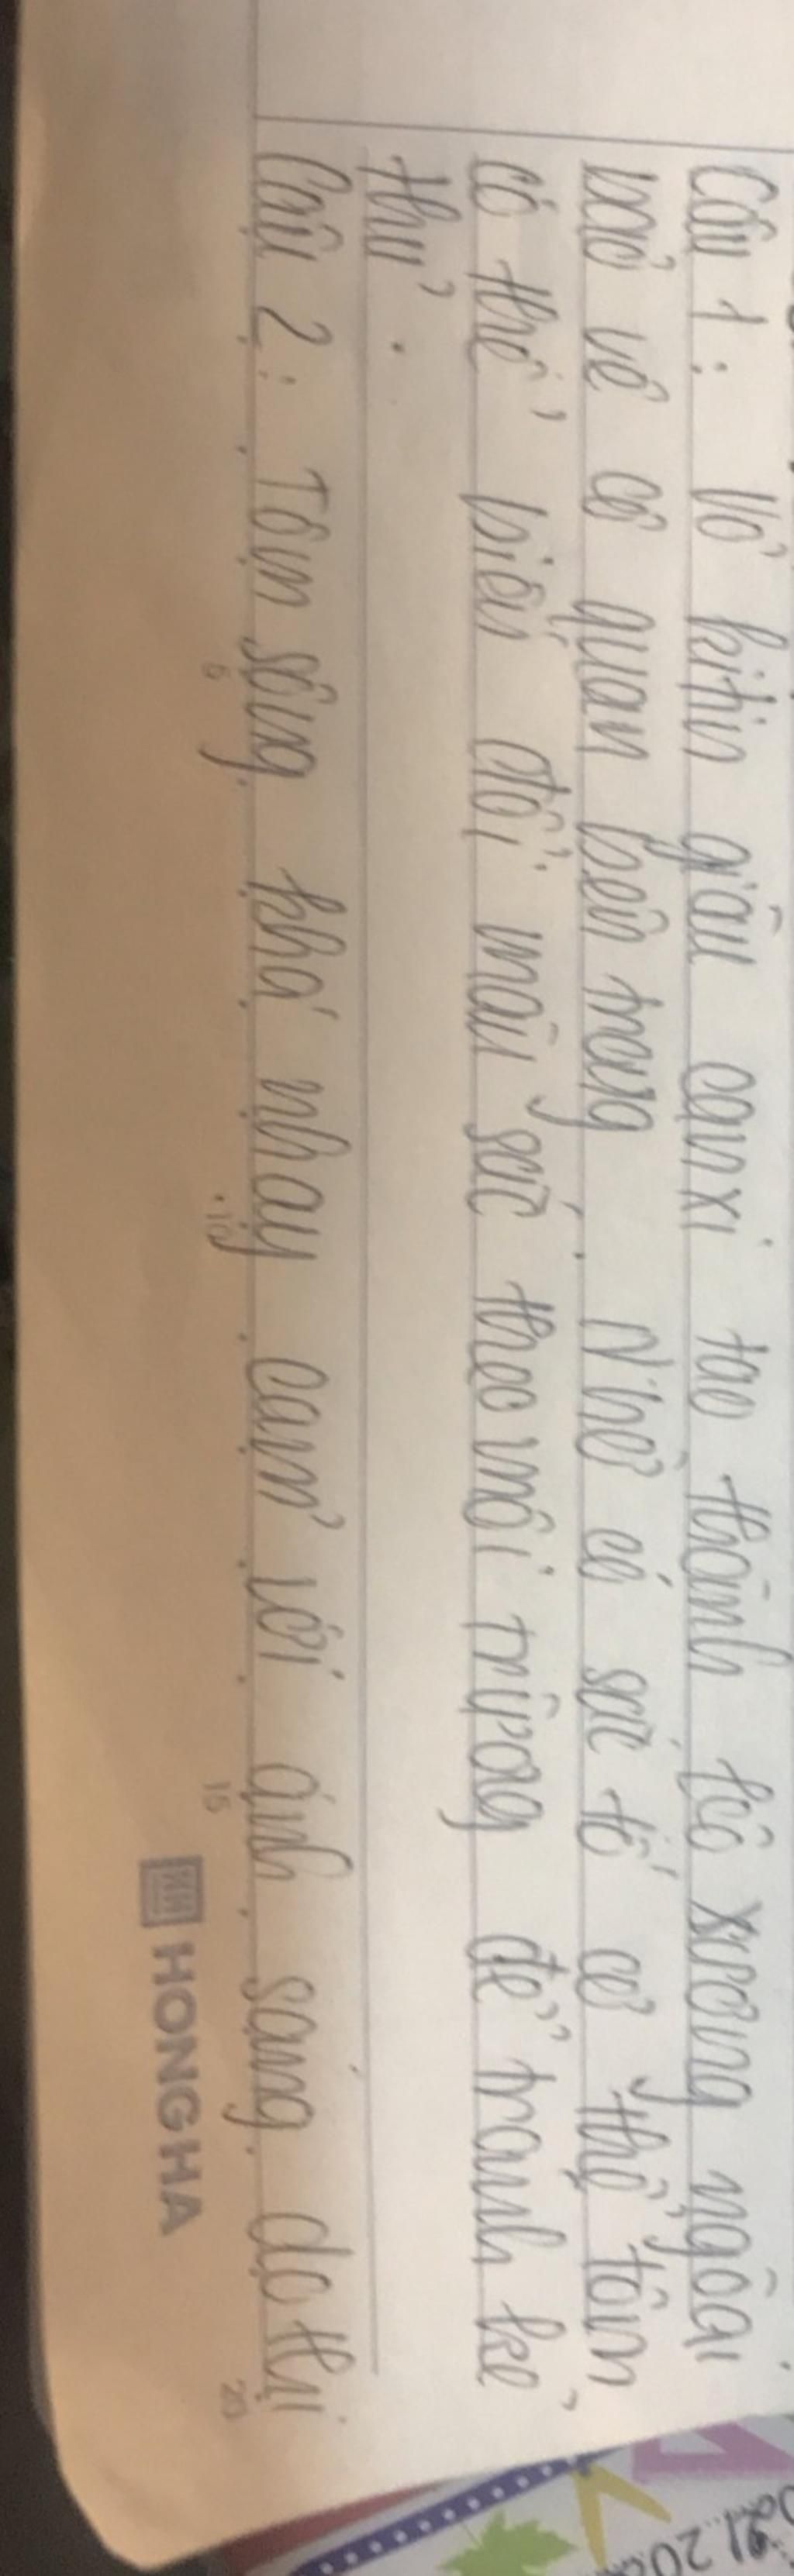 Câu 1: Vỏ kitin giàu canxi tạo thành bộ xương ngoài
bảo vệ cơ quan bên trong. Nhờ có sắc tố cơ thể tôm
có thể biến đổi màu sắc theo môi trường để tránh kẻ
thù.
Câu 2: Tôm sông khá nhạy cảm với ánh sáng do thị
5 10 15 20
HONG HA
21 20